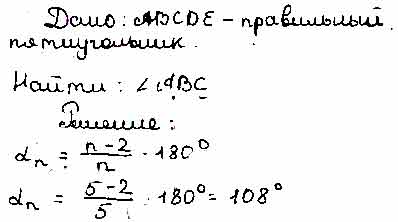 Дано: ABCDE - правильный
пятиугольник.
Найти: ∠ABC
Решение:
αₙ = (n-2)/n · 180°
αₙ = (5-2)/5 · 180° = 108°